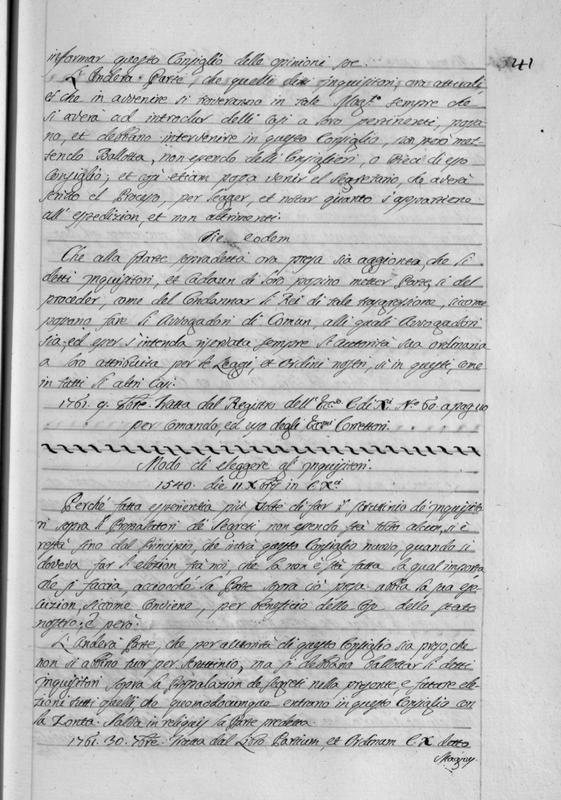 241
informar questo Consiglio delle opinioni sue.
L'Anderà Parte, che quelli detti Inquisitori, ora attuali,
et che in avvenire si troveranno in tale Magto sempre che
si averà ad introdur delli Casi a loro pertinenti, possa
no, et debbano intervenire in questo Consiglio, non però met
tendo Ballotta, non essendo delli Consiglieri, o Dieci di esso
Consiglio; et così etiam possa venir el Segretario, che averà
scritto el Processo, per legger, et notar quanto s'appartiene
all' espedizion, et non altrimenti.
Die eodem
Che alla Parte sopradetta ora presa sia aggionta, che li
detti Inquisitori, et cadaun di loro possino metter Parte, sì del
proceder, come del Condannar li Rei di tale trasgressione, sicome
possono fare li Avvogadori di Comun, alli quali Avvogadori
sia, ed esser s'intenda riservata sempre la auttorità sua ordinaria
a loro attribuita per le Leggi, et Ordini nostri, sì in questi come
in tutti li altri Casi.
1761. 9. Tratta dal Registro dell' C. di X. No 60. a pag.
per comando, ed uso degli Correttori.
Modo di eleggere gl' Inquisitori.
1540. die II Xbris in C. X.
Perchè fatta esperientia più volte di far il scrutinio de Inquisito
ri sopra li Propalatori de Segreti non essendo stà tolto alcun, si è
restà fino dal Principio, che intrà questo Consiglio nuovo, quando si
doveva far l'elezion fra noi, che la non è stà fatta, la qual importa
che si faccia, acciocchè la Parte sopra ciò presa abbia la sua ese
cuzion, sicome conviene, per beneficio delle cose dello stato
nostro; è però
L'Anderà Parte, che per autorità di questo Consiglio sia preso, che
non si abbino tuor per scrutinio, ma si debbano ballottar li detti
Inquisitori sopra la Propalazion de segreti nella presente, e future ele
zioni tutti quelli, che quomodocumque entrano in questo Consiglio con
la Zonta. Salva in reliquis la Parte predetta.
1761. 30. Tratta dal Libro Partium, et Ordinum C. X